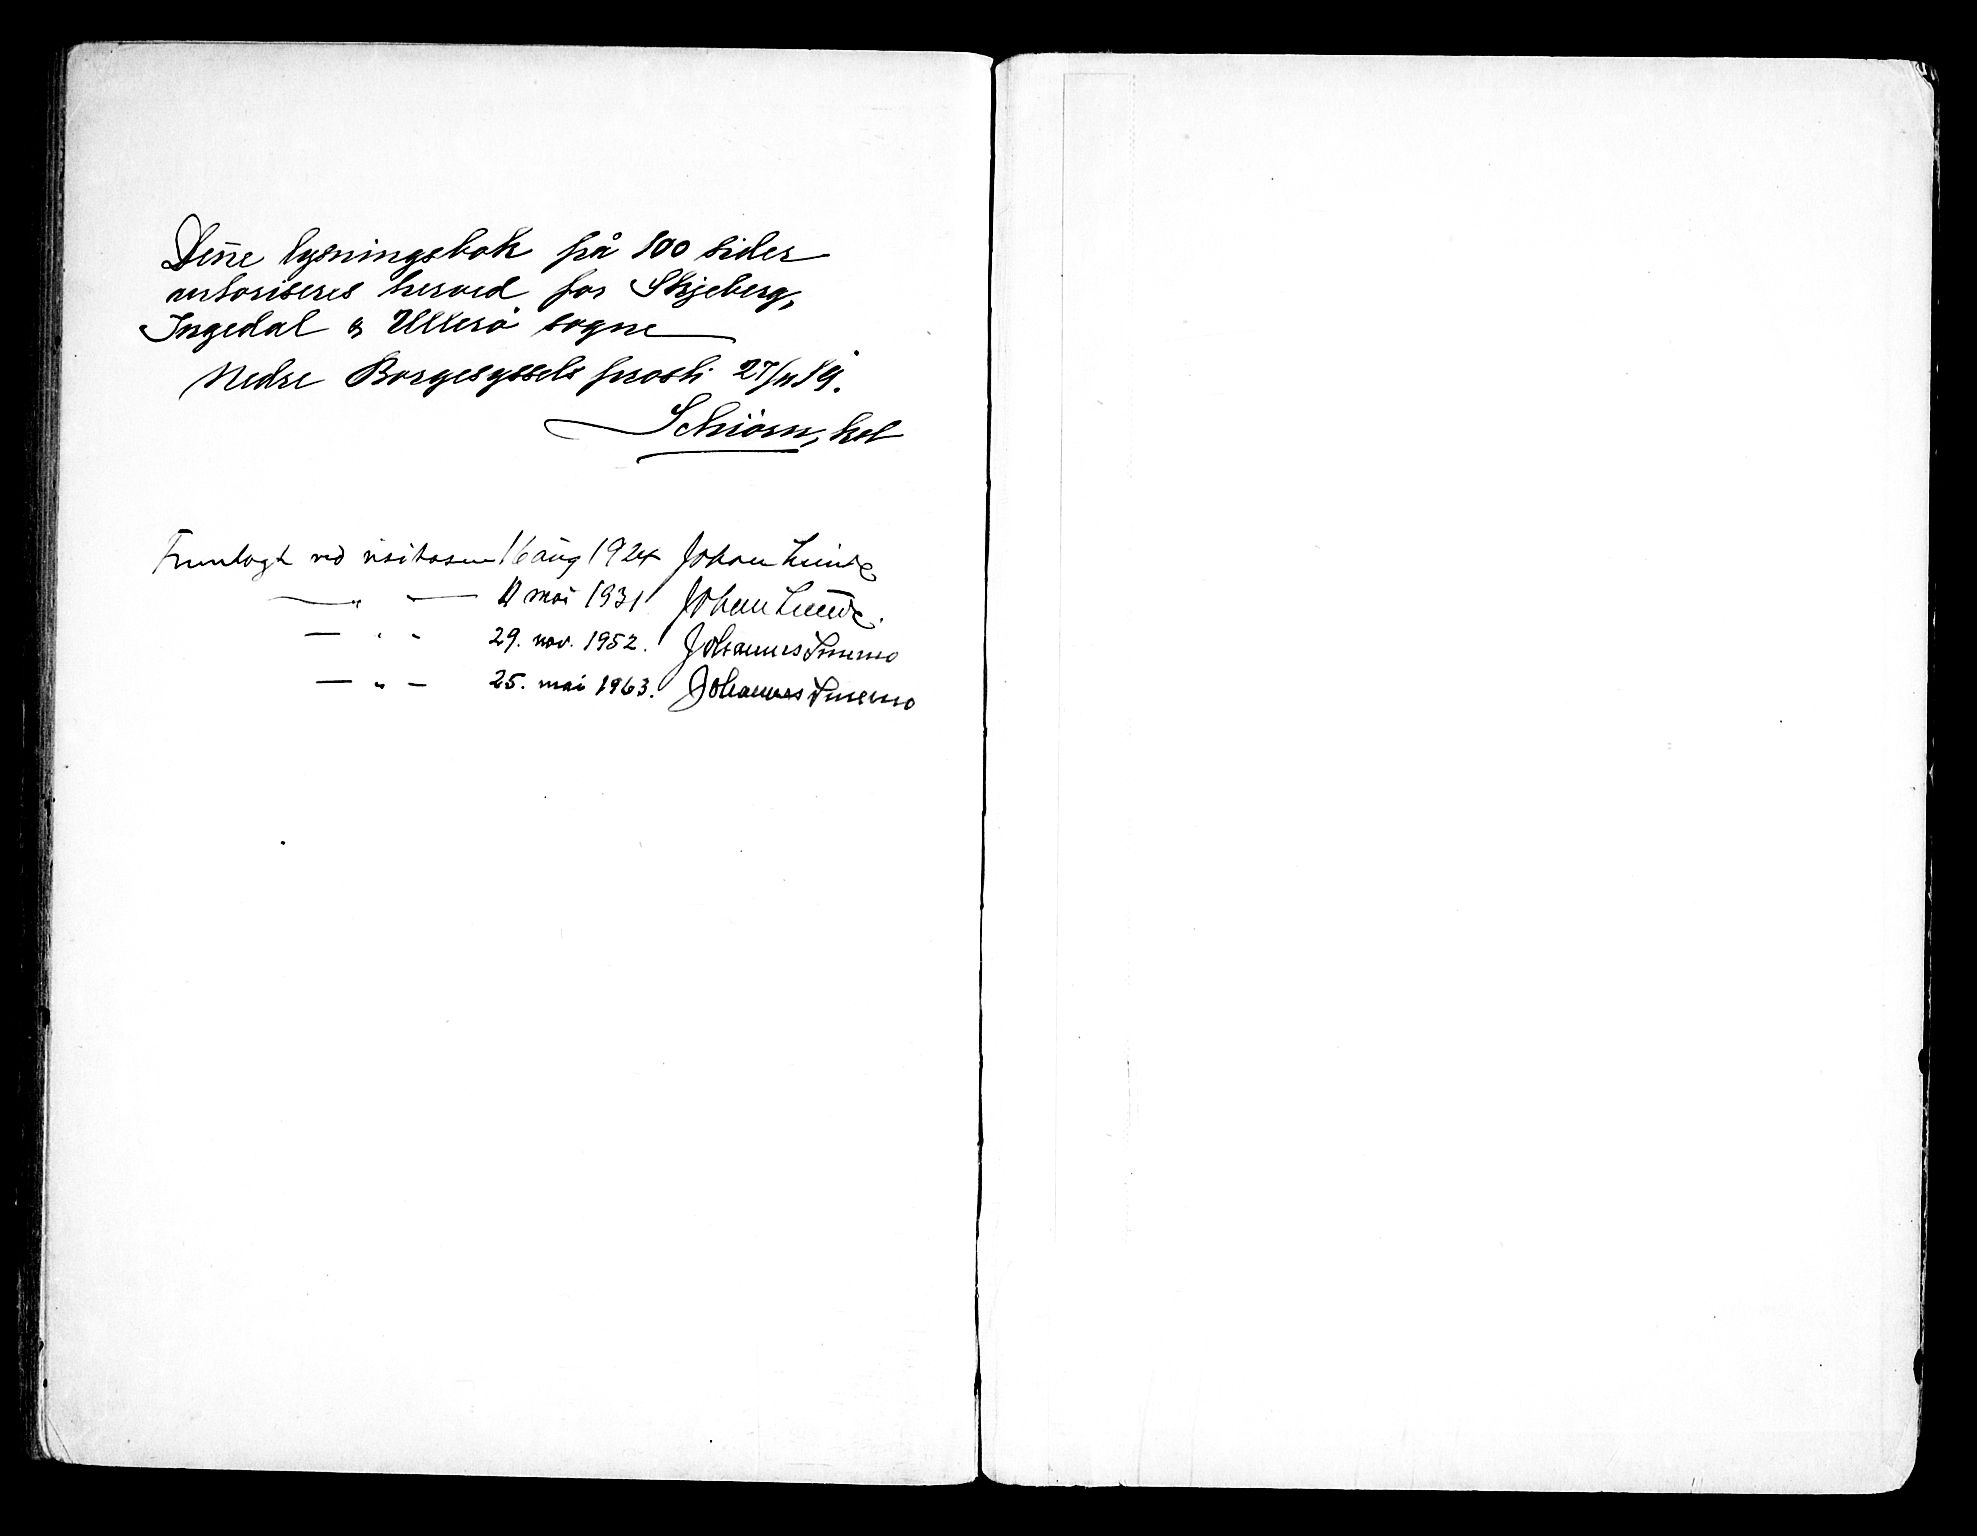 Deñe lysningsbok på 100 sider
autoriseres herved for Skjeberg,
Ingedal & Ullerö sogne
Nedre Borgesyssels prosti 27/11 19.
Schiörn, kst
Fremlagt ved visitasen 16 aug 1924 Johan Lunde
— „ — 11 mai 1931 Johan Lunde.
— „ — 29. nov. 1952. Johannes Smemo
— „ — 25. mai 1963. Johannes Smemo